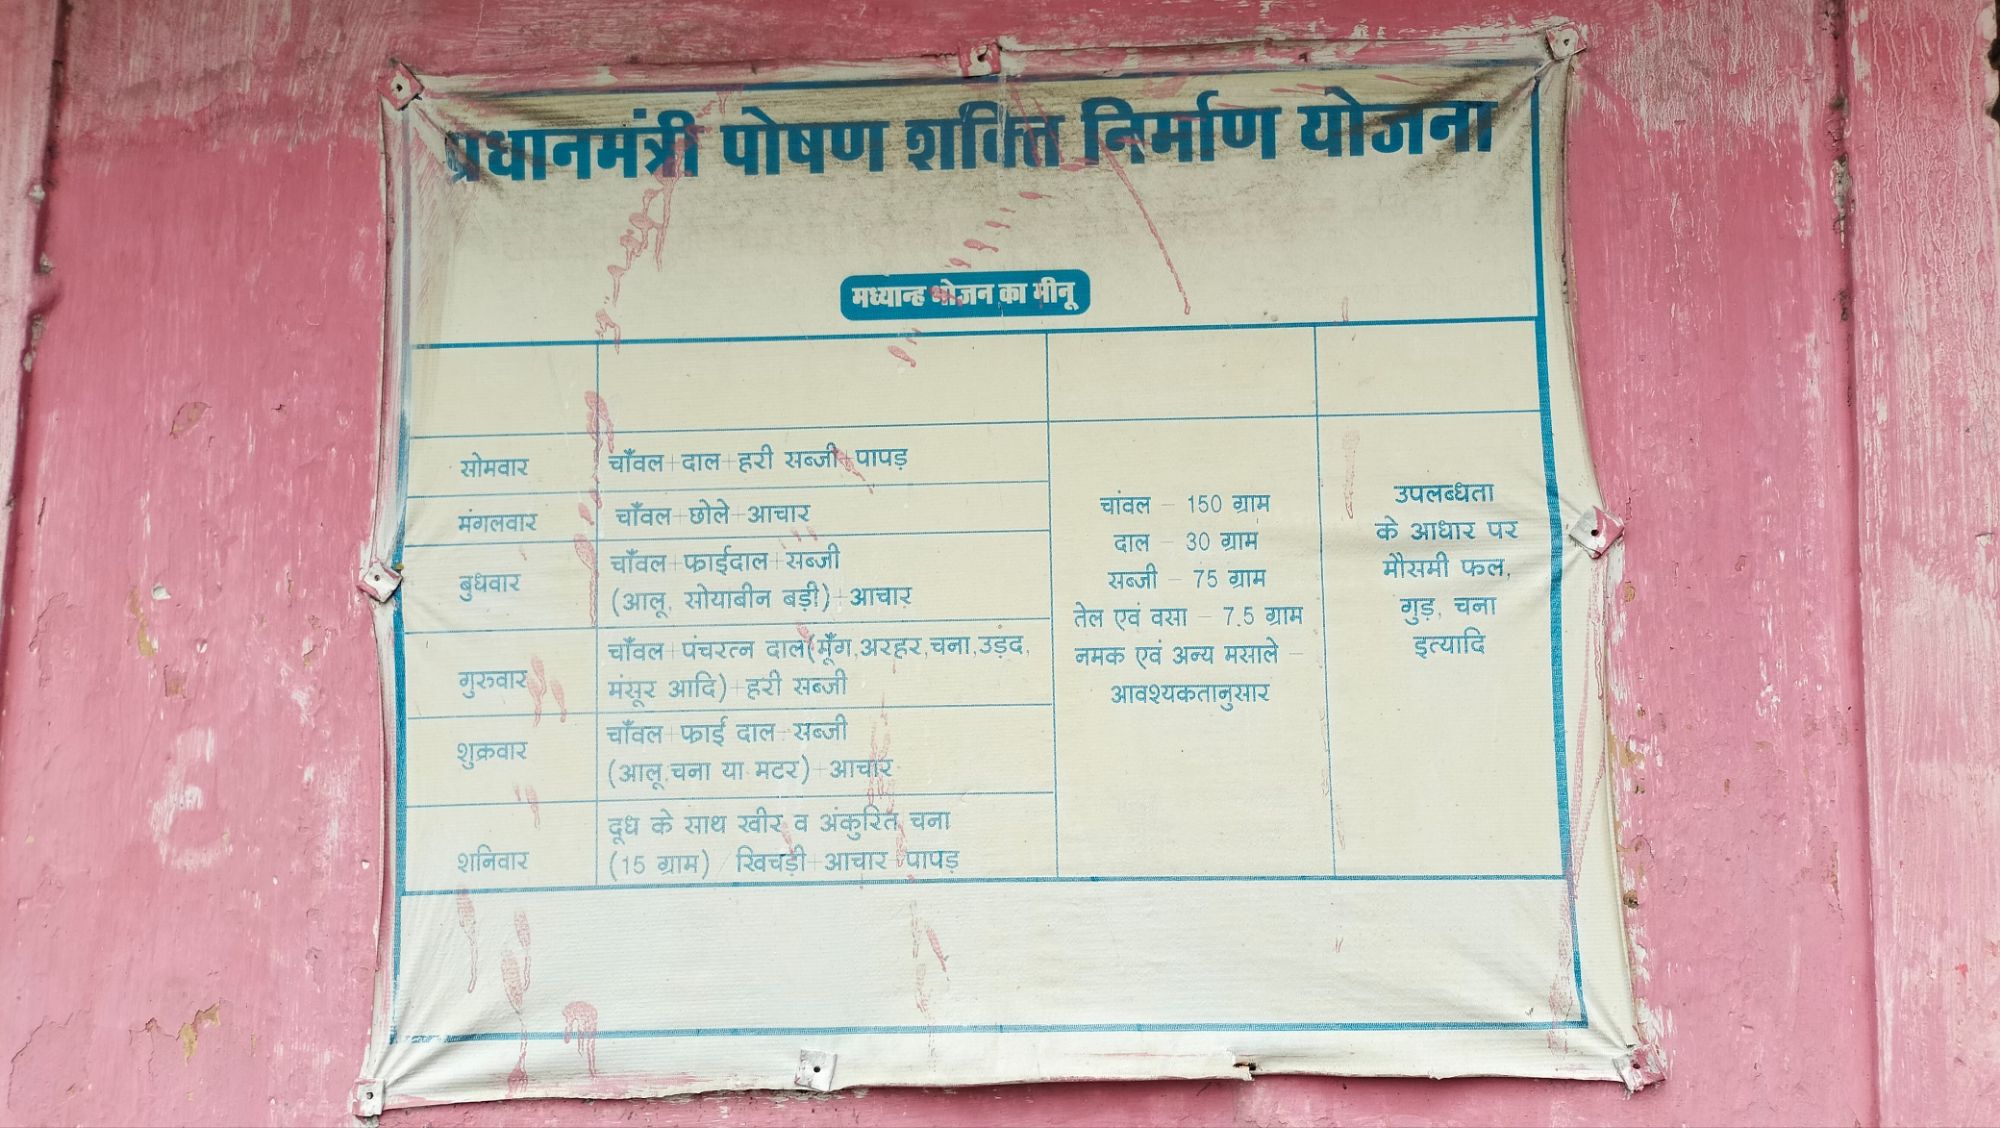 प्रधानमंत्री पोषण शक्ति निर्माण योजना
मध्यान्ह भोजन का मीनू
सोमवार
चाँवल+दाल+हरी सब्जी+पापड़
मंगलवार
चाँवल+छोले+आचार
बुधवार
चाँवल+फाईदाल+सब्जी
(आलू, सोयाबीन बड़ी)+आचार
गुरुवार
चाँवल+पंचरत्न दाल(मूँग,अरहर,चना,उड़द,
मंसूर आदि)+हरी सब्जी
शुक्रवार
चाँवल+फाई दाल+सब्जी
(आलू,चना या मटर)+आचार
शनिवार
दूध के साथ खीर व अंकुरित चना
(15 ग्राम) / खिचड़ी+आचार+पापड़
चांवल – 150 ग्राम
दाल – 30 ग्राम
सब्जी – 75 ग्राम
तेल एवं वसा – 7.5 ग्राम
नमक एवं अन्य मसाले –
आवश्यकतानुसार
उपलब्धता
के आधार पर
मौसमी फल,
गुड़, चना
इत्यादि